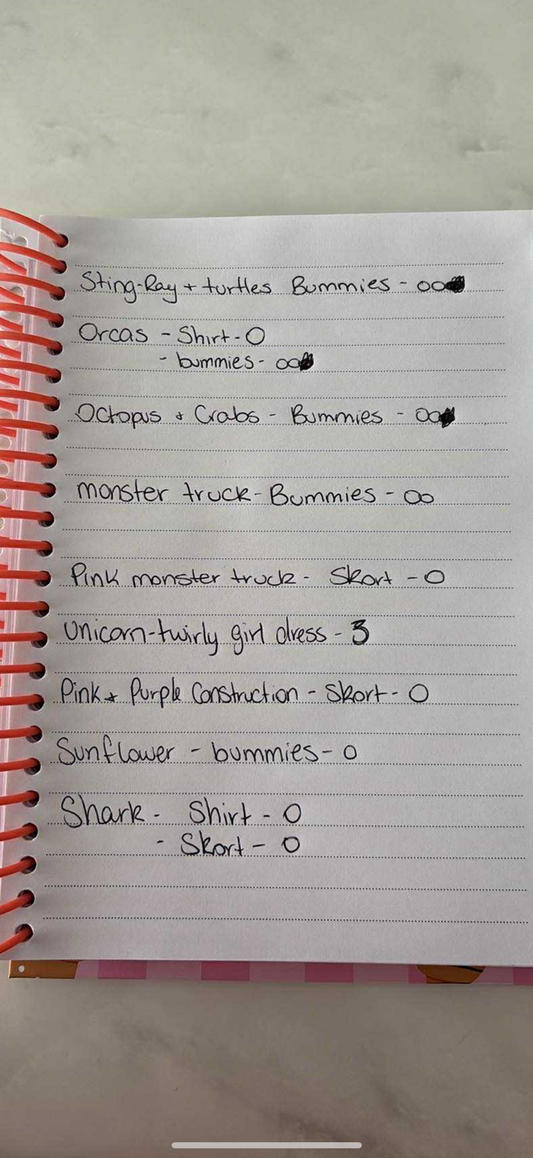 Sting-Ray + turtles Bummies - 00
Orcas - Shirt - 0
- bummies - 00
Octopus + Crabs - Bummies - 00
monster truck - Bummies - 00
Pink monster truck - Skort - 0
Unicorn-twirly girl dress - 3
Pink + Purple Construction - Skort - 0
Sunflower - bummies - 0
Shark - Shirt - 0
- Skort - 0